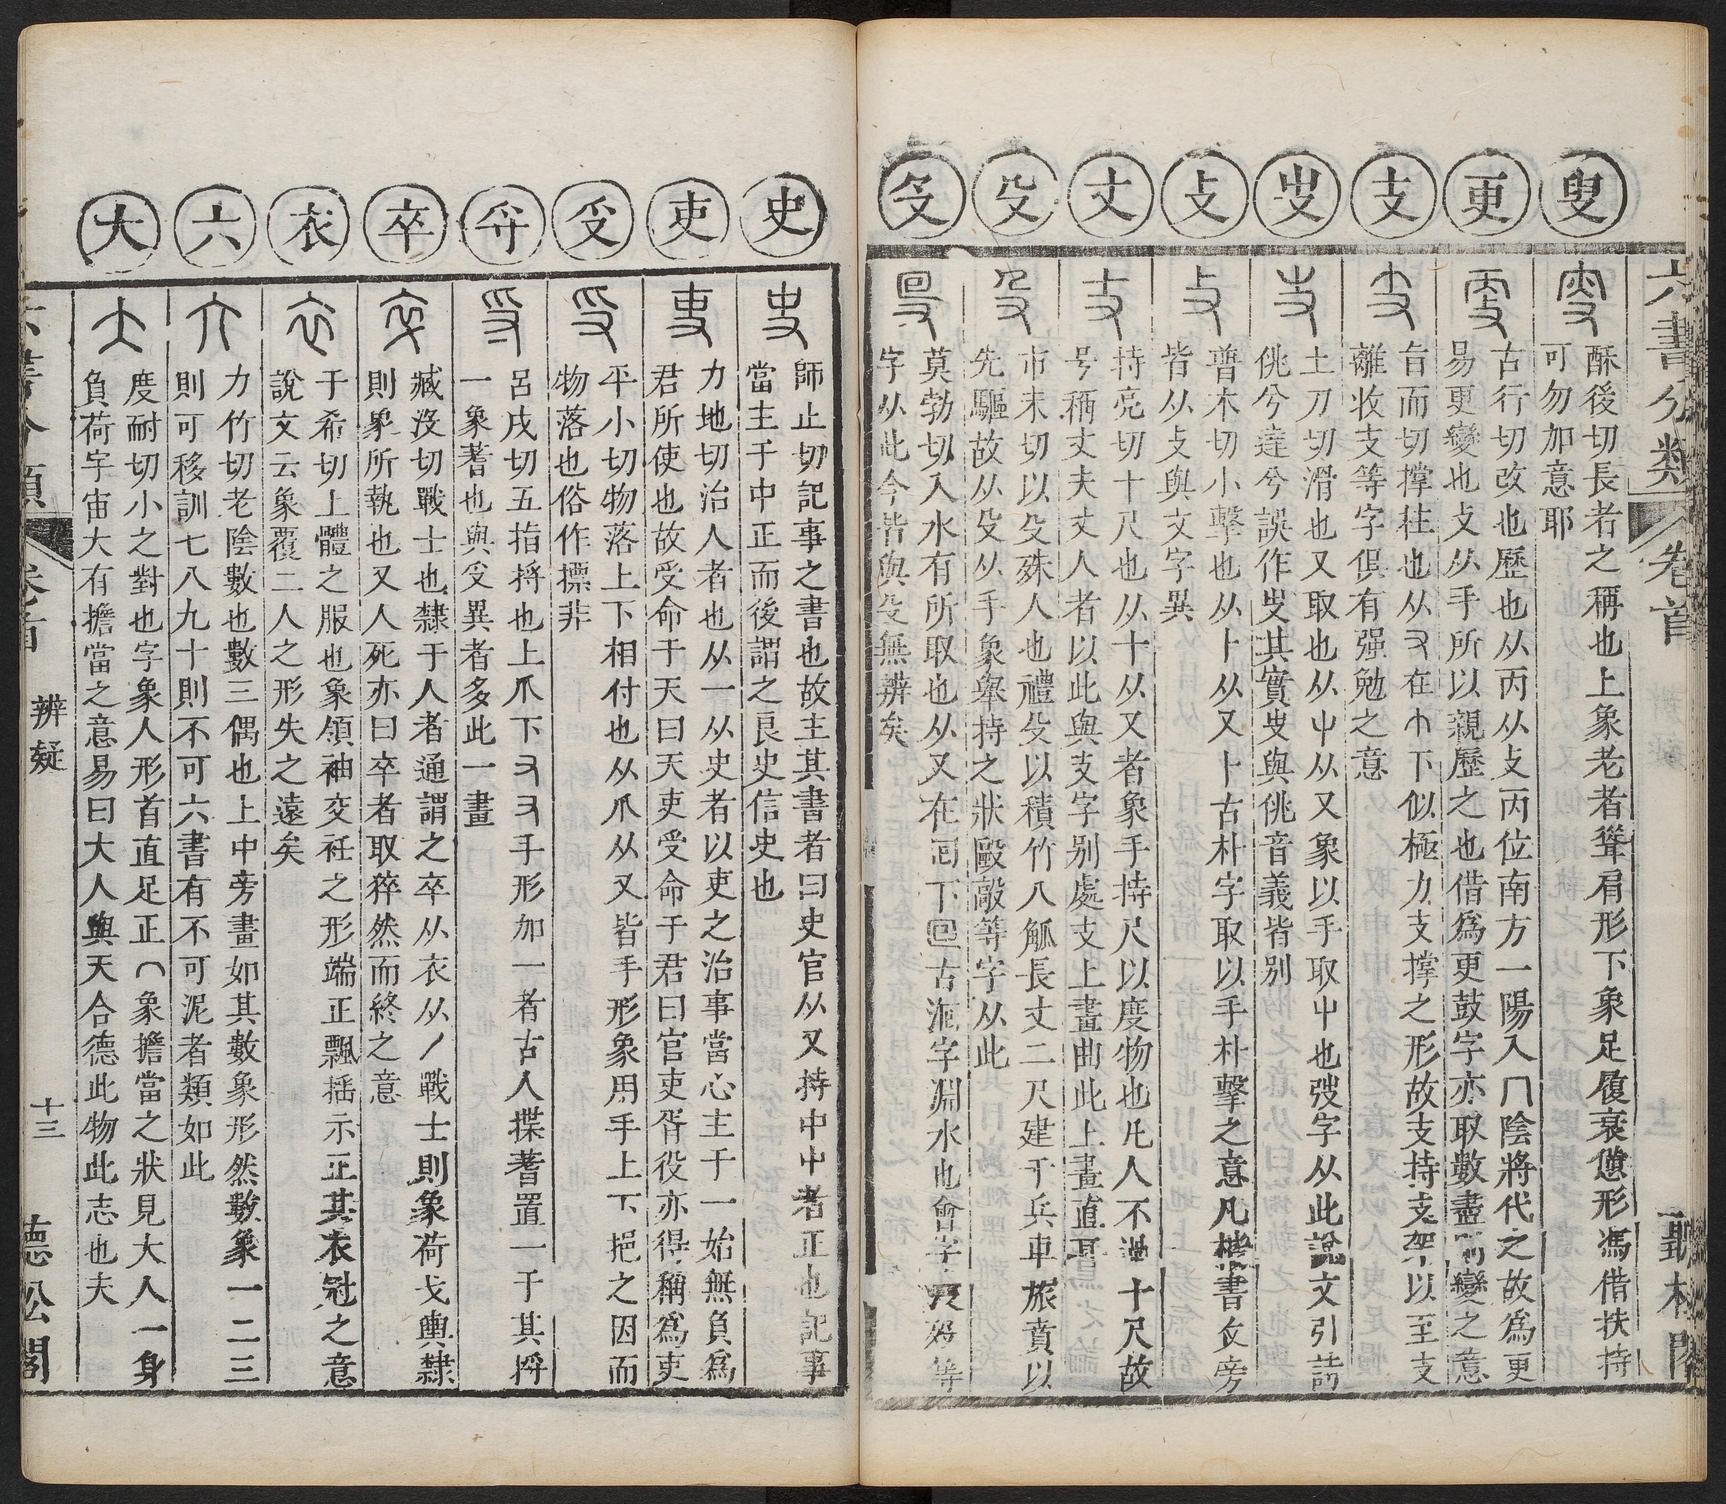 六書分類
卷首
聽松閣
叟
酥後切長者之稱也上象老者聳肩形下象足履衰憊形馮借扶持
可勿加意耶
更
古行切改也歷也从丙从攴丙位南方一陽入冂陰將代之故為更
易更變也攴从手所以親歷之也借為更鼓字亦取數盡而變之意
支
旨而切撐拄也从又在巾下似極力支撐之形故支持支架以至支
離收支等字俱有强勉之意
𠬢
土刀切滑也又取也从屮从又象以手取屮也弢字从此說文引詩
佻兮達兮誤作𠬢其實𠬢與佻音義皆別
攴
普木切小擊也从卜从又卜古朴字取以手朴擊之意凡楷書攵旁
皆从攴與文字異
丈
持亮切十尺也从十从又者象手持尺以度物也凡人不過十尺故
号稱丈夫丈人者以此與支字別處支上畫曲此上畫直耳
殳
市朱切以殳殊人也禮殳以積竹八觚長丈二尺建于兵車旅賁以
先驅故从殳从手象舉持之狀毆敲等字从此
𠬛
莫勃切入水有所取也从又在回下回古洄字淵水也會字
字从此今皆與殳無辨矣
史
師止切記事之書也故主其書者曰史官从又持中中者正也記事
當主于中正而後謂之良史信史也
吏
力地切治人者也从一从史者以吏之治事當心主于一始無負為
君所使也故受命于天曰天吏受命于君曰官吏胥役亦得稱為吏
𠬪
平小切物落上下相付也从爪从又皆手形象用手上下挹之因而
物落也俗作摽非
寽
呂戌切五指捋也上爪下又又手形加一者古人揲蓍置一于其捋
一象蓍也與𠬪異者多此一畫
卒
臧沒切戰士也隸于人者通謂之卒从衣从丿戰士則象荷戈輿隸
則象所執也又人死亦曰卒者取猝然而終之意
衣
于希切上體之服也象領袖交衽之形端正飄搖示正其衣冠之意
說文云象覆二人之形失之遠矣
六
力竹切老陰數也數三偶也上中旁畫如其數象形然數象一二三
則可移訓七八九十則不可六書有不可泥者類如此
大
度耐切小之對也字象人形首直足正冖象擔當之狀見大人一身
負荷宇宙大有擔當之意易曰大人與天合德此物此志也夫
六書分類
卷首
辨疑
十三
聽松閣